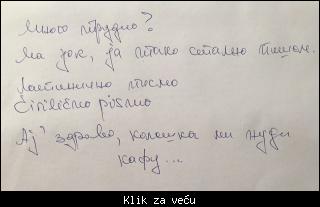 Много трудно?
Ма јок, ја тако стално пишем.
Латинично писмо
Ćirilično pismo
Ај' здраво, колешка ми нуди
кафу...
Klik za veću